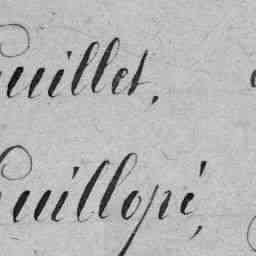 Guillet,
Guillopé,